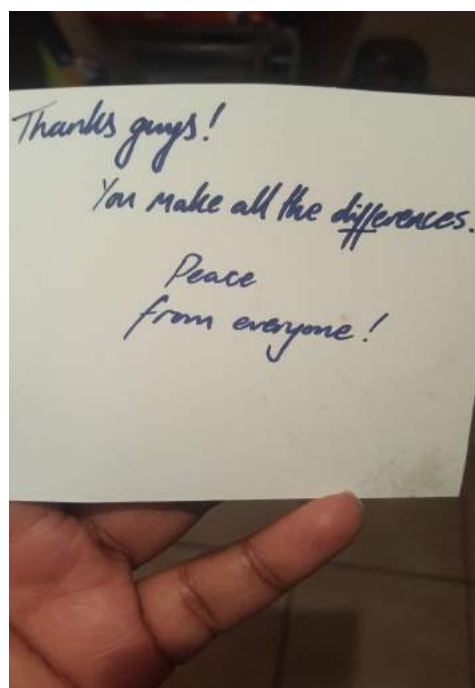 Thanks guys!
You make all the differences.
Peace
from everyone!